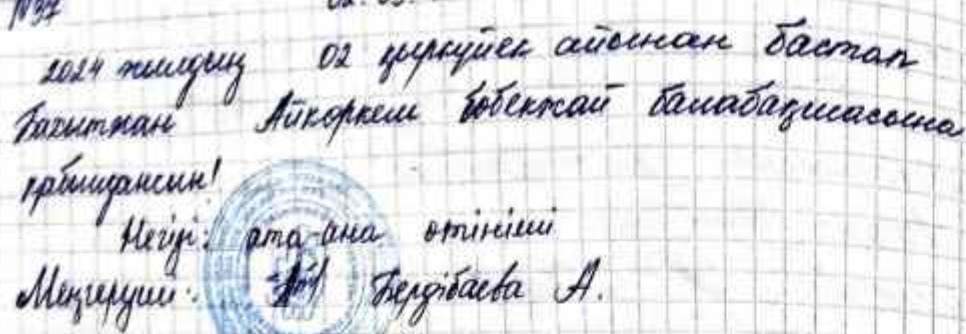 №37 02. 09.
2024 жылдың 02 қыркүйек айынан бастап
Бахытжан Айкоркем бөбекжай балабақшасына
қабылдансын!
Негізі: ата-ана өтініші
Меңгеруші: Бердібаева А.